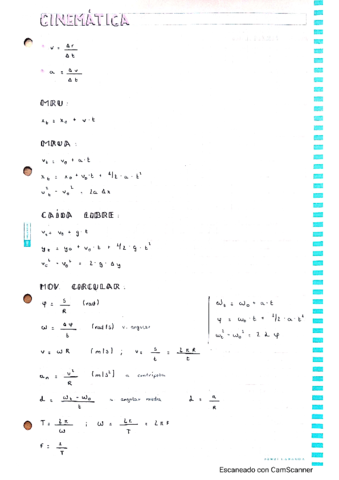 CINEMÁTICA
v = Δr / Δt
a = Δv / Δt
MRU:
x_t = x_0 + v · t
MRUA:
v_t = v_0 + a · t
x_t = x_0 + v_0 · t + 1/2 · a · t²
v_t² - v_0² = 2a Δx
CAÍDA LIBRE:
v_t = v_0 + g · t
y_t = y_0 + v_0 · t + 1/2 · g · t²
v_t² - v_0² = 2 · g · Δy
MOV CIRCULAR.
φ = s / R (rad)
ω = Δφ / t (rad/s) v. angular
v = ω R [m/s] ; v = s / t = 2πR / t
a_n = v² / R [m/s²] a centrípeta
α = ω_t - ω_0 / t = angular media
α = a / R
T = 2π / ω ; ω = 2π / T = 2πF
F = 1 / T
ω_t = ω_0 + α · t
φ = ω_0 · t + 1/2 · α · t²
ω_t² - ω_0² = 2 α φ
Escaneado con CamScanner